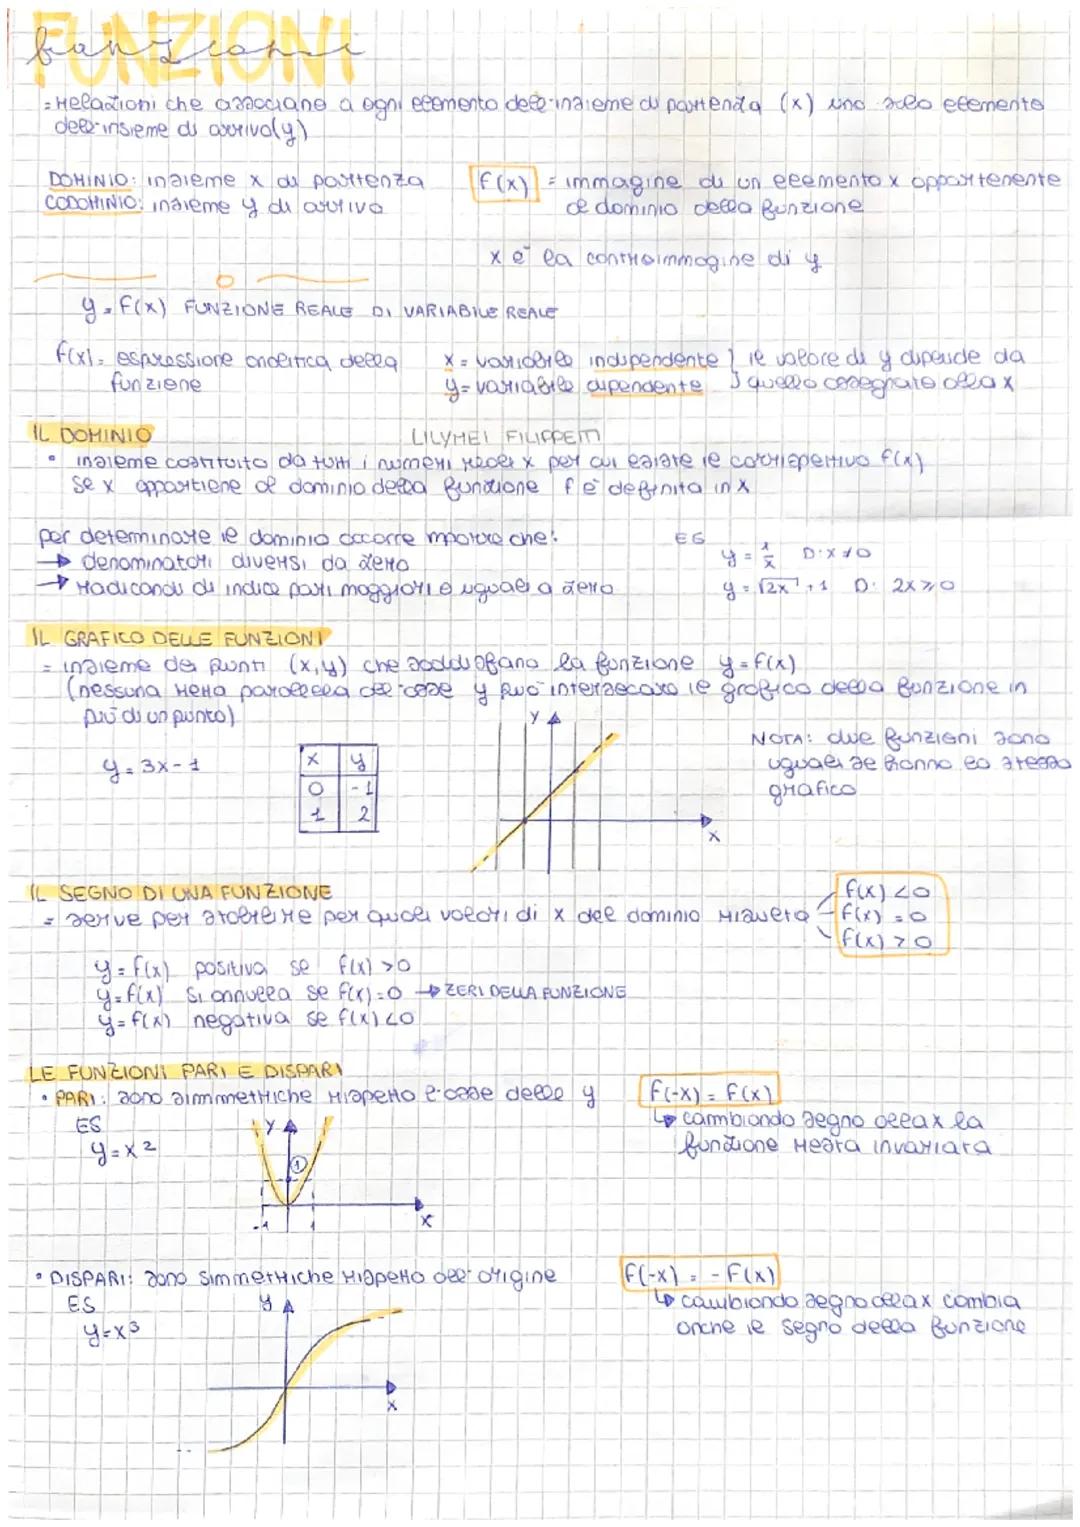 FUNZIONI
funzioni
= relazioni che associano a ogni elemento dell'insieme di partenza (x) uno solo elemento
dell'insieme di arrivo (y)
DOMINIO: insieme x di partenza
CODOMINIO: insieme y di arrivo
f(x) = immagine di un elemento x appartenente
al dominio della funzione
x è la controimmagine di y
y = f(x) FUNZIONE REALE DI VARIABILE REALE
f(x) = espressione analitica della
funzione
x = variabile indipendente } il valore di y dipende da
y = variabile dipendente } quello assegnato alla x
IL DOMINIO
LILYMEI FILIPPETTI
• insieme costituito da tutti i numeri reali x per cui esiste il corrispettivo f(x)
se x appartiene al dominio della funzione f è definita in x
per determinare il dominio occorre imporre che:
→ denominatori diversi da zero
→ radicandi di indice pari maggiori e uguali a zero
ES
y = 1/x D: x ≠ 0
y = √2x + 1 D: 2x ≥ 0
IL GRAFICO DELLE FUNZIONI
= insieme dei punti (x,y) che soddisfano la funzione y = f(x)
(nessuna retta parallela all'asse y può intersecare il grafico della funzione in
più di un punto)
y = 3x - 1
x y
0 -1
1 2
y
x
NOTA: due funzioni sono
uguali se hanno lo stesso
grafico
IL SEGNO DI UNA FUNZIONE
= serve per stabilire per quali valori di x del dominio risulta
f(x) < 0
f(x) = 0
f(x) > 0
y = f(x) positiva se f(x) > 0
y = f(x) si annulla se f(x) = 0 → ZERI DELLA FUNZIONE
y = f(x) negativa se f(x) < 0
LE FUNZIONI PARI E DISPARI
• PARI: sono simmetriche rispetto l'asse delle y
ES
y = x²
y
1
-1 1
x
f(-x) = f(x)
↳ cambiando segno alla x la
funzione resta invariata
• DISPARI: sono simmetriche rispetto all'origine
ES
y = x³
y
x
f(-x) = - f(x)
↳ cambiando segno alla x cambia
anche il segno della funzione